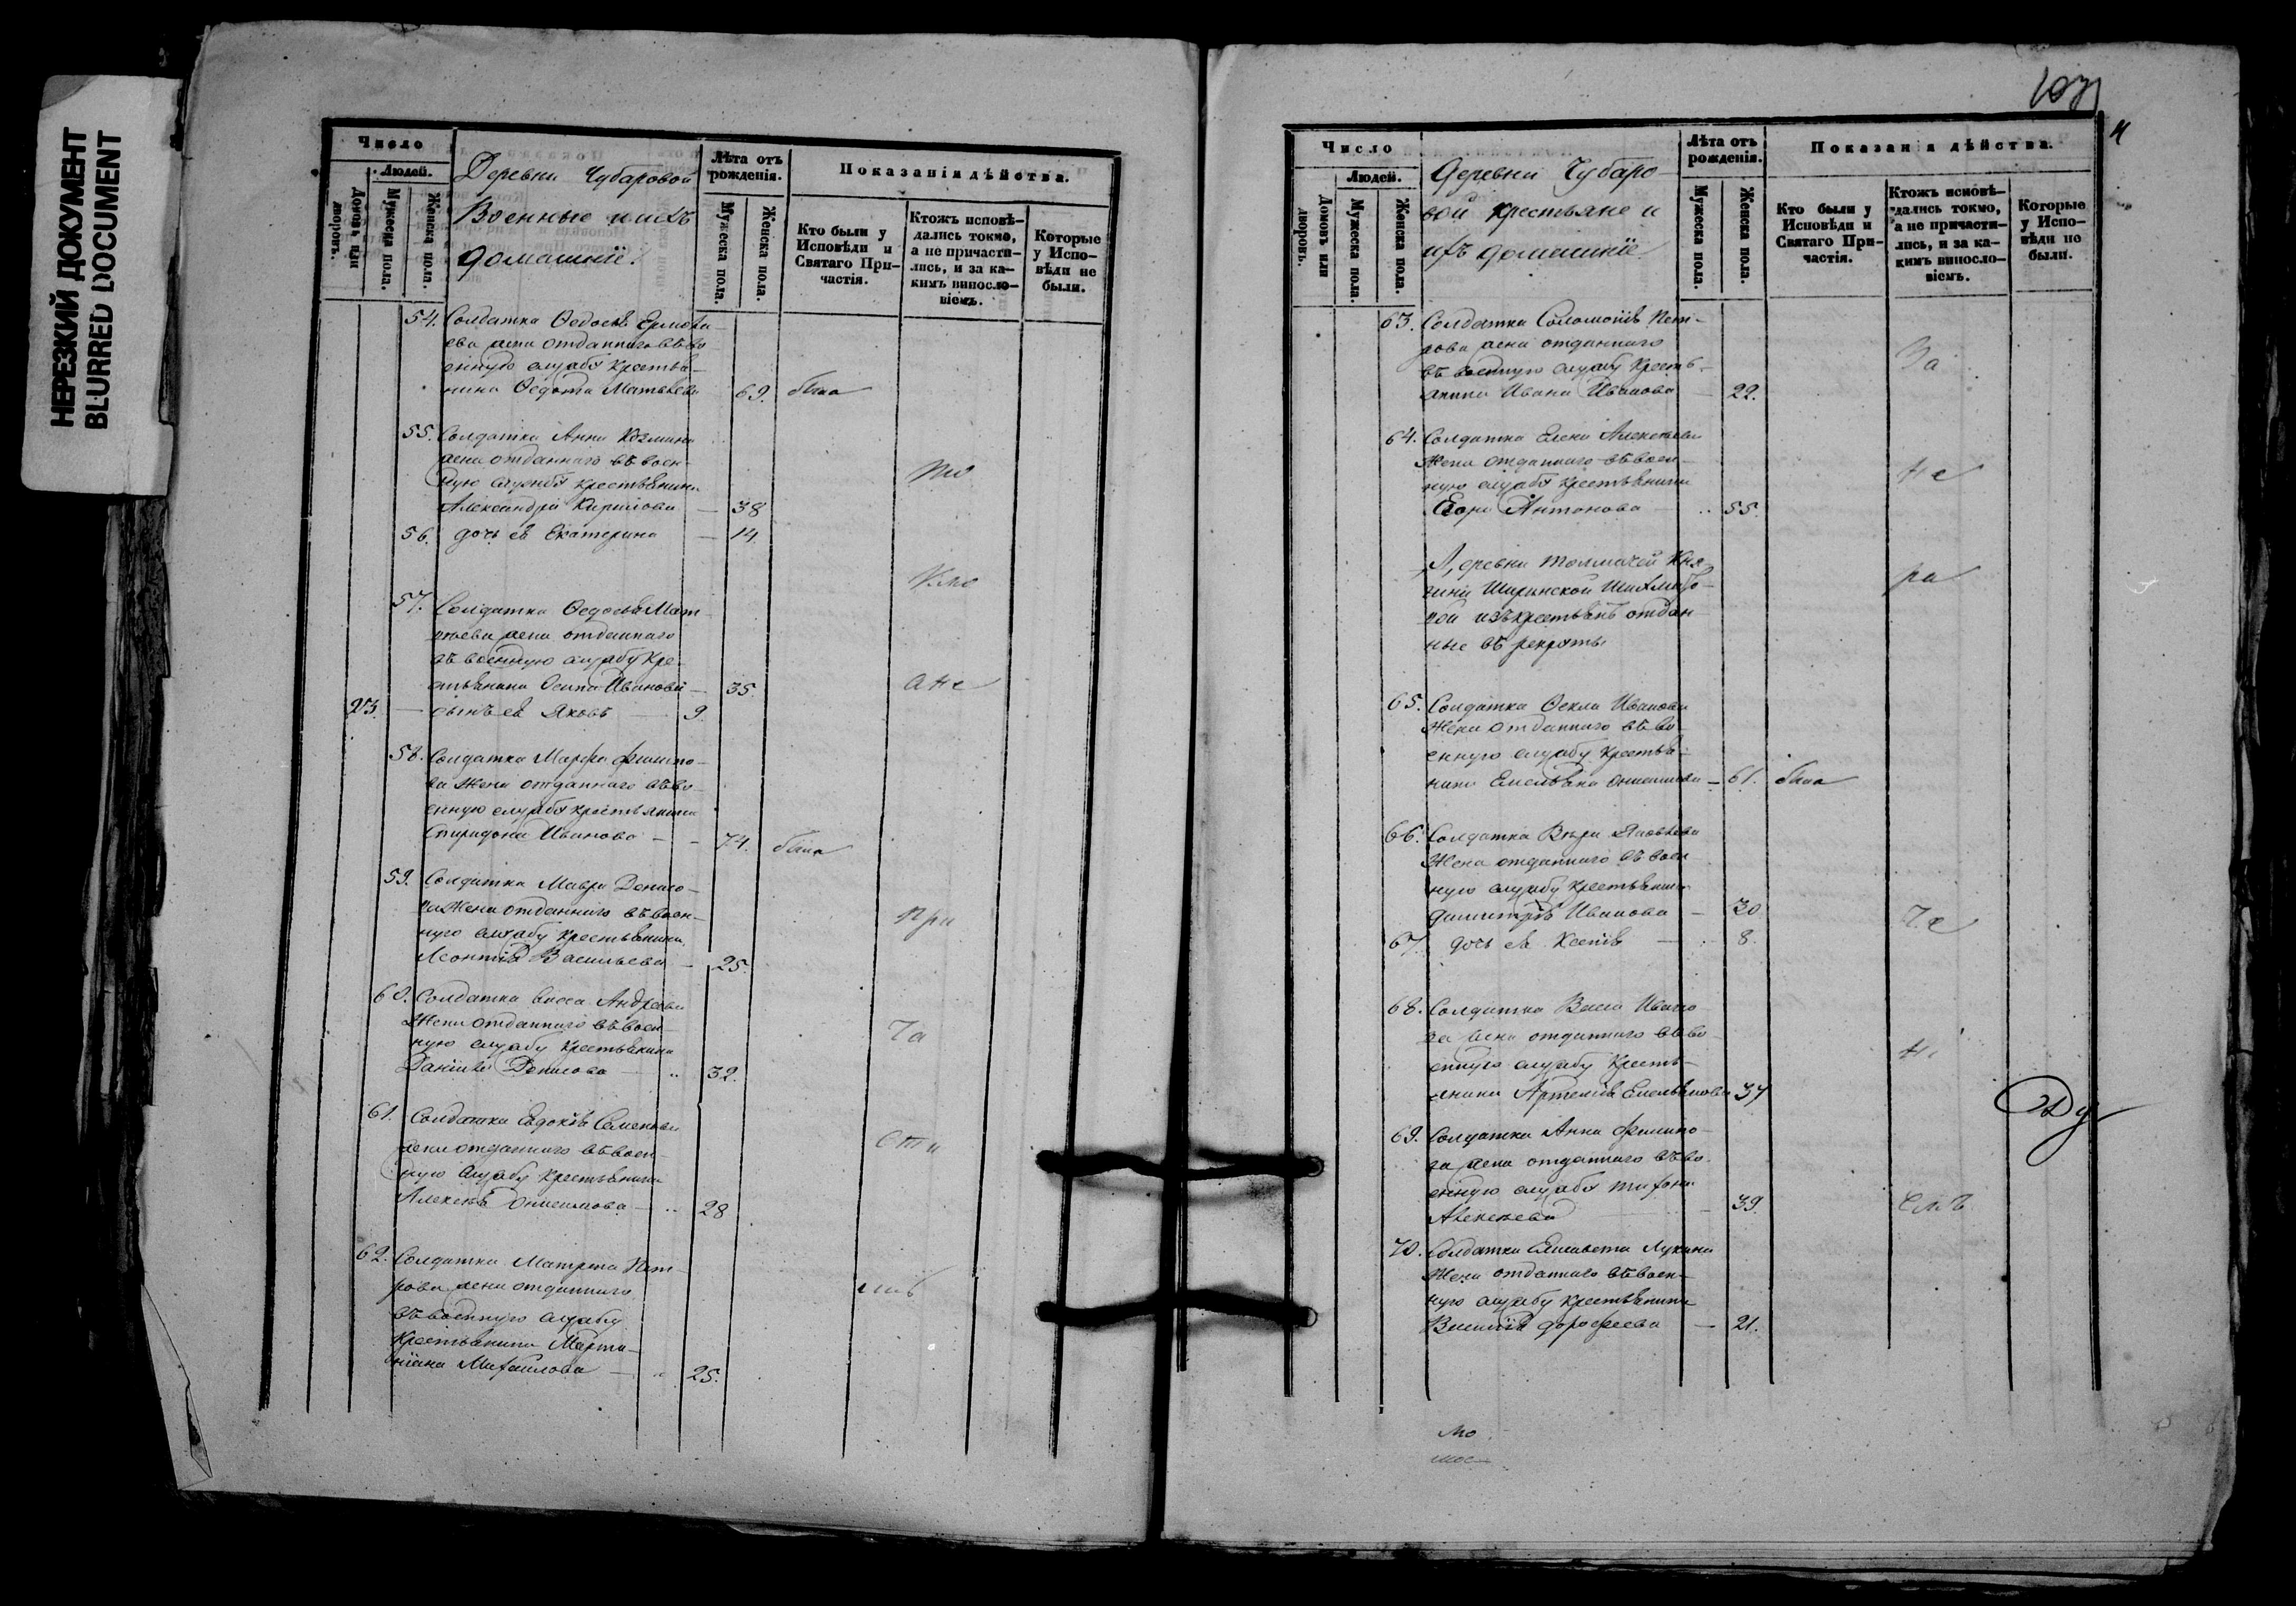 НЕРЕЗКИЙ ДОКУМЕНТ
BLURRED DOCUMENT
Число
Людей.
Домовъ или дворовъ.
Мужеска пола.
Женска пола.
Деревни Чубаровой
Военные и ихъ
домашніе.
Лѣта отъ рожденія.
Мужеска пола.
Женска пола.
Показанія дѣйства.
Кто были у Исповѣди и Святаго Причастія.
Ктожъ исповѣ-
дались токмо,
а не причасти-
лись, и за ка-
кимъ виносло-
віемъ.
Которые
у Испо-
вѣди не
были.
54. Солдатка Ѳедосья
ева жена отданнаго въ во-
енную службу крестья-
нина Ѳедота Матвѣева 69. была
55. Солдатка Анна Козмина
жена отданнаго въ воен-
ную службу крестьянина
Александра Кирилова — 38
56. дочь ея Екатерина — 14.
57. Солдатка Ѳедосья Мат-
вѣева жена отданнаго
въ военную службу кре-
стьянина Осипа Иванова — 35.
23. — сынъ ея Яковъ — 9.
58. Солдатка Марфа Филипо-
ва жена отданнаго въ во-
енную службу крестьянина
Спиридона Иванова — 74. была
59. Солдатка Мавра Денисо-
ва жена отданнаго въ воен-
ную службу крестьянина
Леонтія Васильева — 25.
60. Солдатка Васса Андреева
жена отданнаго въ воен-
ную службу крестьянина
Даніила Денисова — 32.
61. Солдатка Евдокія Семенова
жена отданнаго въ воен-
ную службу крестьянина
Алексѣя Онисимова — 28
62. Солдатка Матрена Пет-
рова жена отданнаго
въ военную службу
крестьянина Марти-
ніана Михайлова — 25.
то
кмо
а не
при
ча
сти
лись
103
Число
Людей.
Домовъ или дворовъ.
Мужеска пола.
Женска пола.
Деревни Чубаро
вой крестьяне и
ихъ домашніе.
Лѣта отъ рожденія.
Мужеска пола.
Женска пола.
Показанія дѣйства.
Кто были у Исповѣди и Святаго Причастія.
Ктожъ исповѣ-
дались токмо,
а не причасти-
лись, и за ка-
кимъ виносло-
віемъ.
Которые
у Испо-
вѣди не
были.
63. Солдатка Соломонія Пет-
рова жена отданнаго
въ военную службу кресть-
янина Ивана Иванова — 22.
64. Солдатка Елена Алексѣева
жена отданнаго въ воен-
ную службу крестьянина
Егора Антонова — 55.
Деревни Толмачей Кня-
гини Ширинской Шихмато-
вой изъ крестьянъ отдан
ные въ рекруты
65. Солдатка Ѳекла Иванова
жена отданнаго въ во-
енную службу крестья-
нина Емельяна Онисимова — 61. была
66. Солдатка Вѣра Яковлева
жена отданнаго въ воен
ную службу крестьянина
Димитрія Иванова — 30
67. дочь ея Ксенія — 8.
68. Солдатка Васса Ивано-
ва жена отданнаго въ во-
енную службу кресть-
янина Артемія Емельянова 37
69. Солдатка Анна Филипо-
ва жена отданнаго въ во-
енную службу Тифона
Алексѣева — 39.
70. Солдатка Елисавета Лукина
жена отданнаго въ воен-
ную службу крестьянина
Василія Дорофеева — 21.
За
не
ра
че
ні
емъ